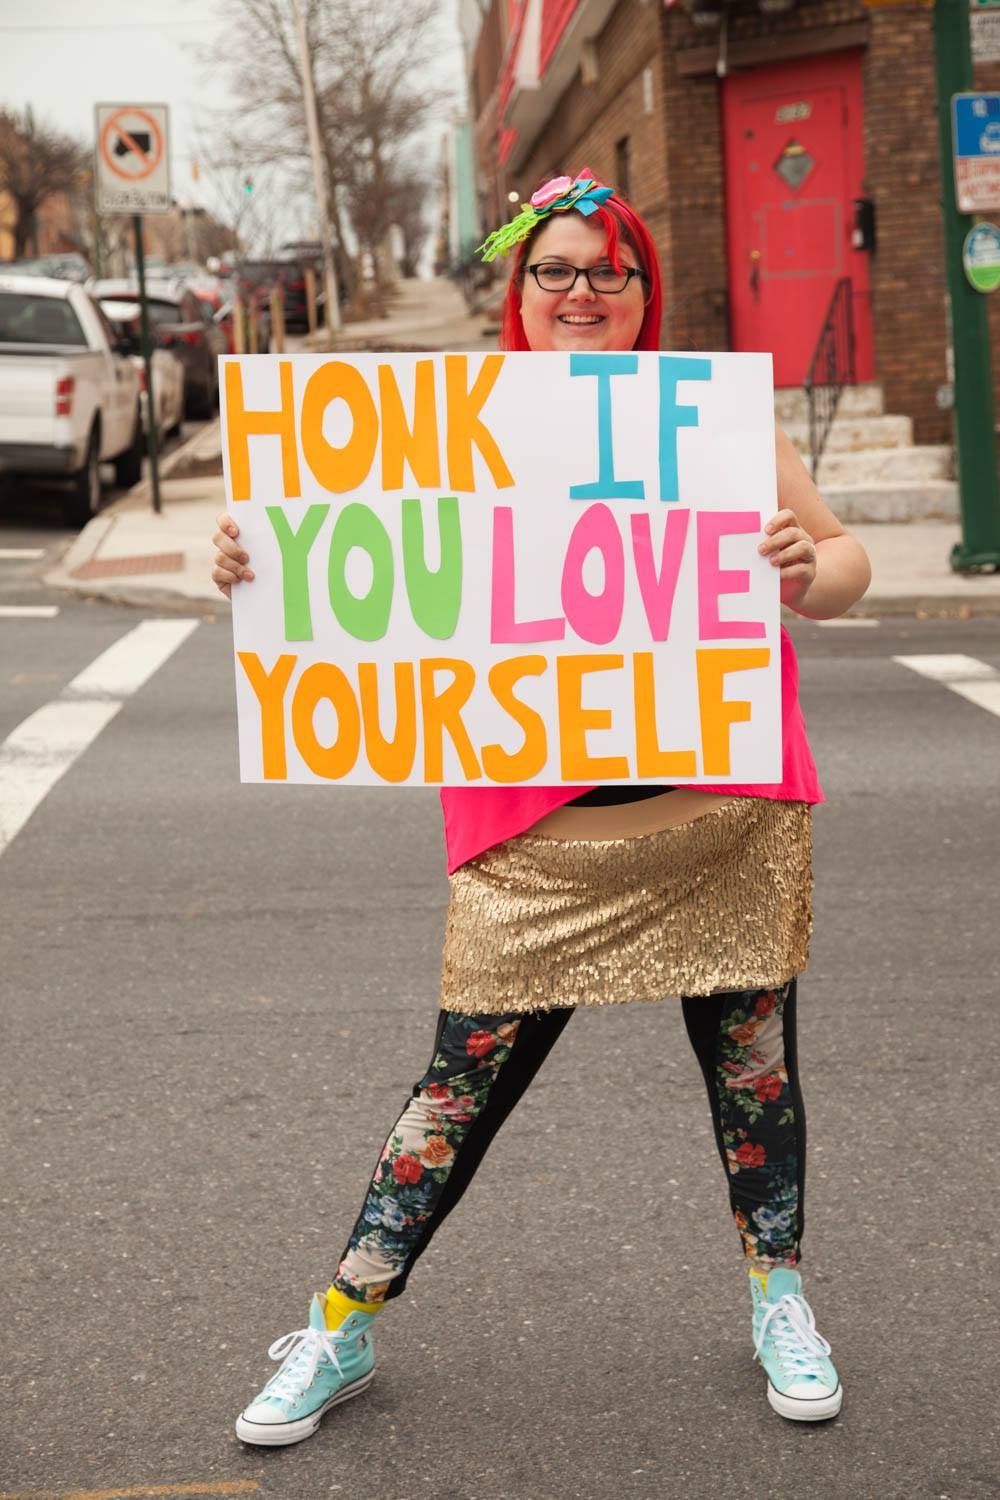 HONK IF
YOU LOVE
YOURSELF